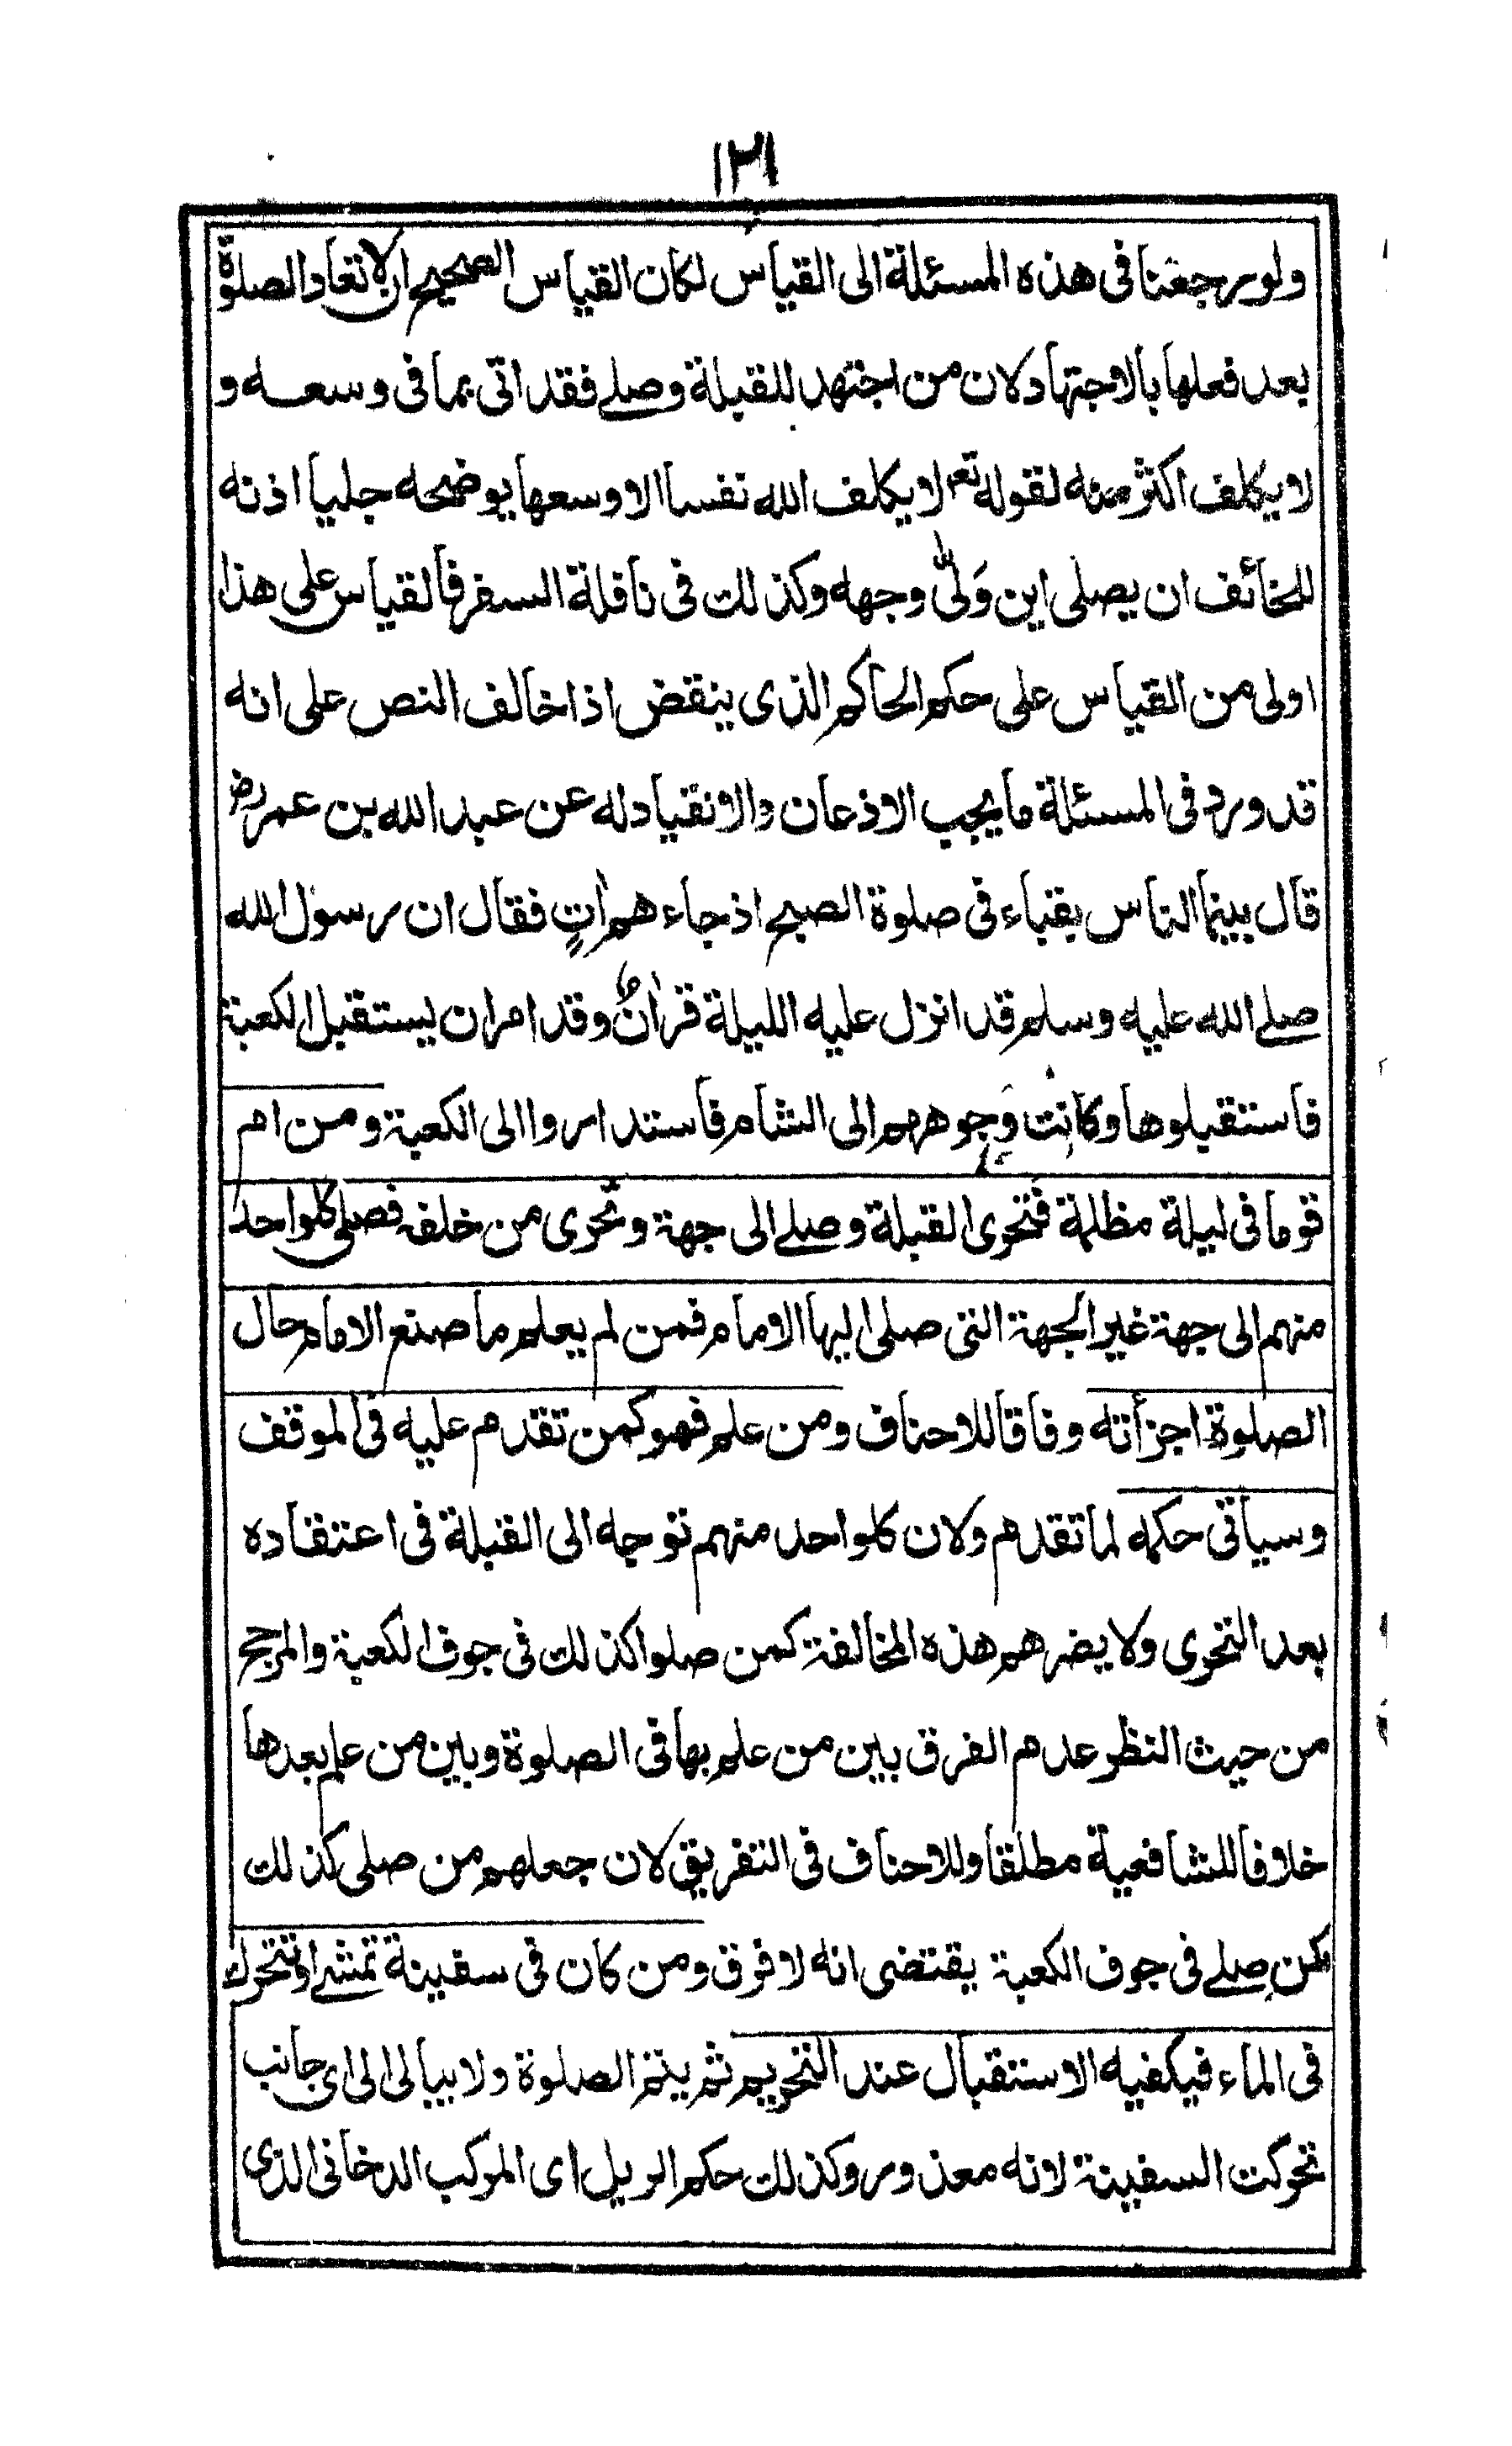 ١٢١
ولو رجعنا فى هذه المسئلة الى القياس لكان القياس الصحيح ان لا تعاد الصلوة
بعد فعلها بالاجتهاد لان من اجتهد للقبلة وصلے فقد اتى بما فى وسعه و
لا يكلف اكثر منه لقوله تعـ لا يكلف الله نفسا الا وسعها يوضحه جليا اذنه
للخائف ان يصلى اين وَلّٰى وجهه وكذلك فى نافلة السفر فالقياس على هذا
اولى من القياس على حكم الحاكم الذى ينقض اذا خالف النص على انه
قد ورد فى المسئلة ما يجب الاذعان والانقياد له عن عبد الله بن عمر رضـ
قال بينما الناس بقباء فى صلوة الصبح اذ جاءهم اٰتٍ فقال ان رسول الله
صلے الله عليه وسلم قد انزل عليه الليلة قراٰنٌ وقد امر ان يستقبل الكعبة
فاستقبلوها وكانت وجوههم الى الشام فاستداروا الى الكعبة ومن ام
قوما فى ليلة مظلمة فتحرى القبلة وصلے الى جهة وتحرى من خلفه فصلى كلواحد
منهم الى جهة غير الجهة التى صلى اليها الامام فمن لم يعلم ما صنع الامام حال
الصلوة اجزأته وفاقا للاحناف ومن علم فهو كمن تقدم عليه فى الموقف
وسياتى حكمه لما تقدم ولان كلواحد منهم توجه الى القبلة فى اعتقاده
بعد التحرى ولا يضرهم هذه المخالفة كمن صلوا كذلك فى جوف الكعبة والمرجح
من حيث النظر عدم الفرق بين من علم بها فى الصلوة وبين من علم بعدها
خلافا للشافعية مطلقا وللاحناف فى التفريق لان جعلهم من صلى كذلك
كمن صلے فى جوف الكعبة يقتضى انه لا فرق ومن كان فى سفينة تمشے او تتحرك
فى الماء فيكفيه الاستقبال عند التحريم ثم يتم الصلوة ولا يبالى الى اى جانب
تحركت السفينة لانه معذور وكذلك حكم الريل اى المركب الدخانى الذى